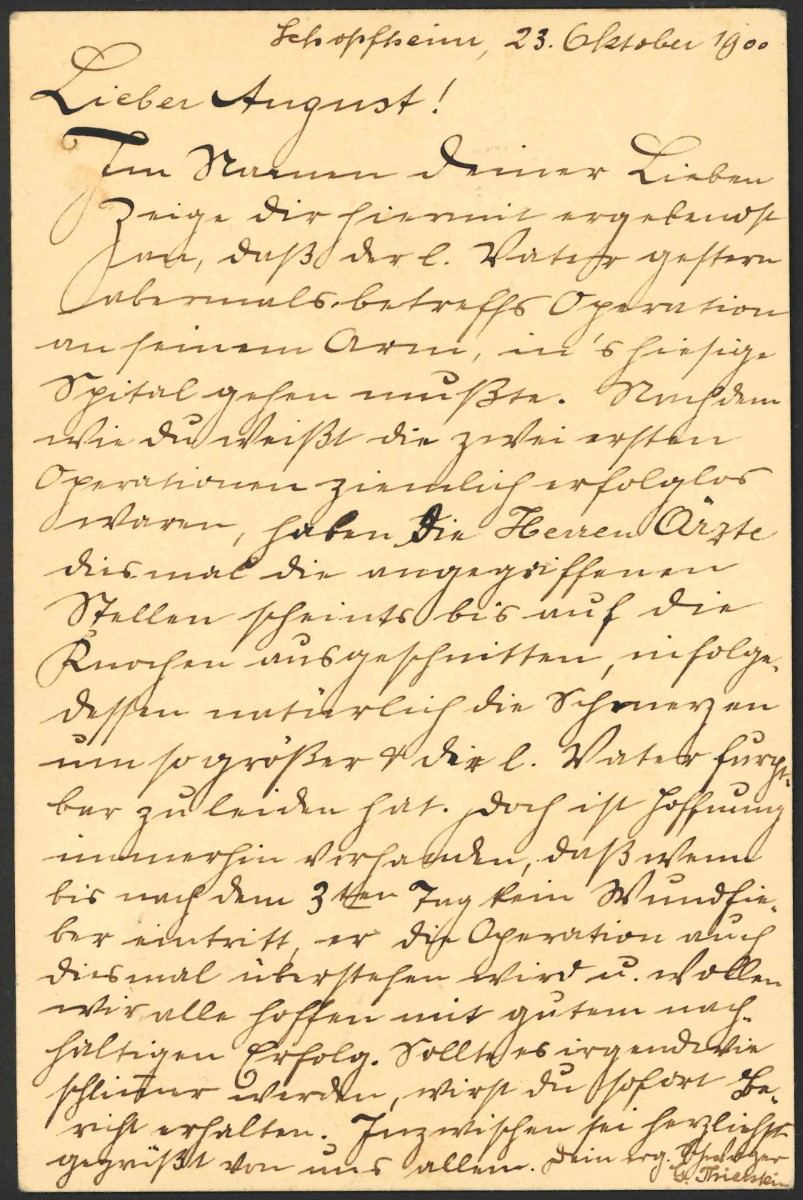 Schopfheim, 23. Oktober 1900
Lieber August!
Im Namen deiner Lieben
zeige dir hiermit ergebenst
an, daß der l. Vater gestern
abermals betreffs Operation
an seinem Arm, in's hiesige
Spital gehen mußte. Nachdem
wie du weißt die zwei ersten
Operationen ziemlich erfolglos
waren, haben die Herren Ärzte
diesmal die angegriffenen
Stellen scheints bis auf die
Knochen ausgeschnitten, infolge-
dessen natürlich die Schmerzen
um so größer & der l. Vater furcht-
bar zu leiden hat. Doch ist Hoffnung
immerhin vorhanden, daß wenn
bis nach dem 3ten Tag kein Wundfie-
ber eintritt, er die Operation auch
diesmal überstehen wird u. wollen
wir alle hoffen mit gutem nach-
haltigen Erfolg. Sollte es irgendwie
schlimmer werden, wirst du sofort Be-
richt erhalten. Inzwischen sei herzlichst
gegrüßt von uns allen. Dein erg. Schwager
G. Thierstein